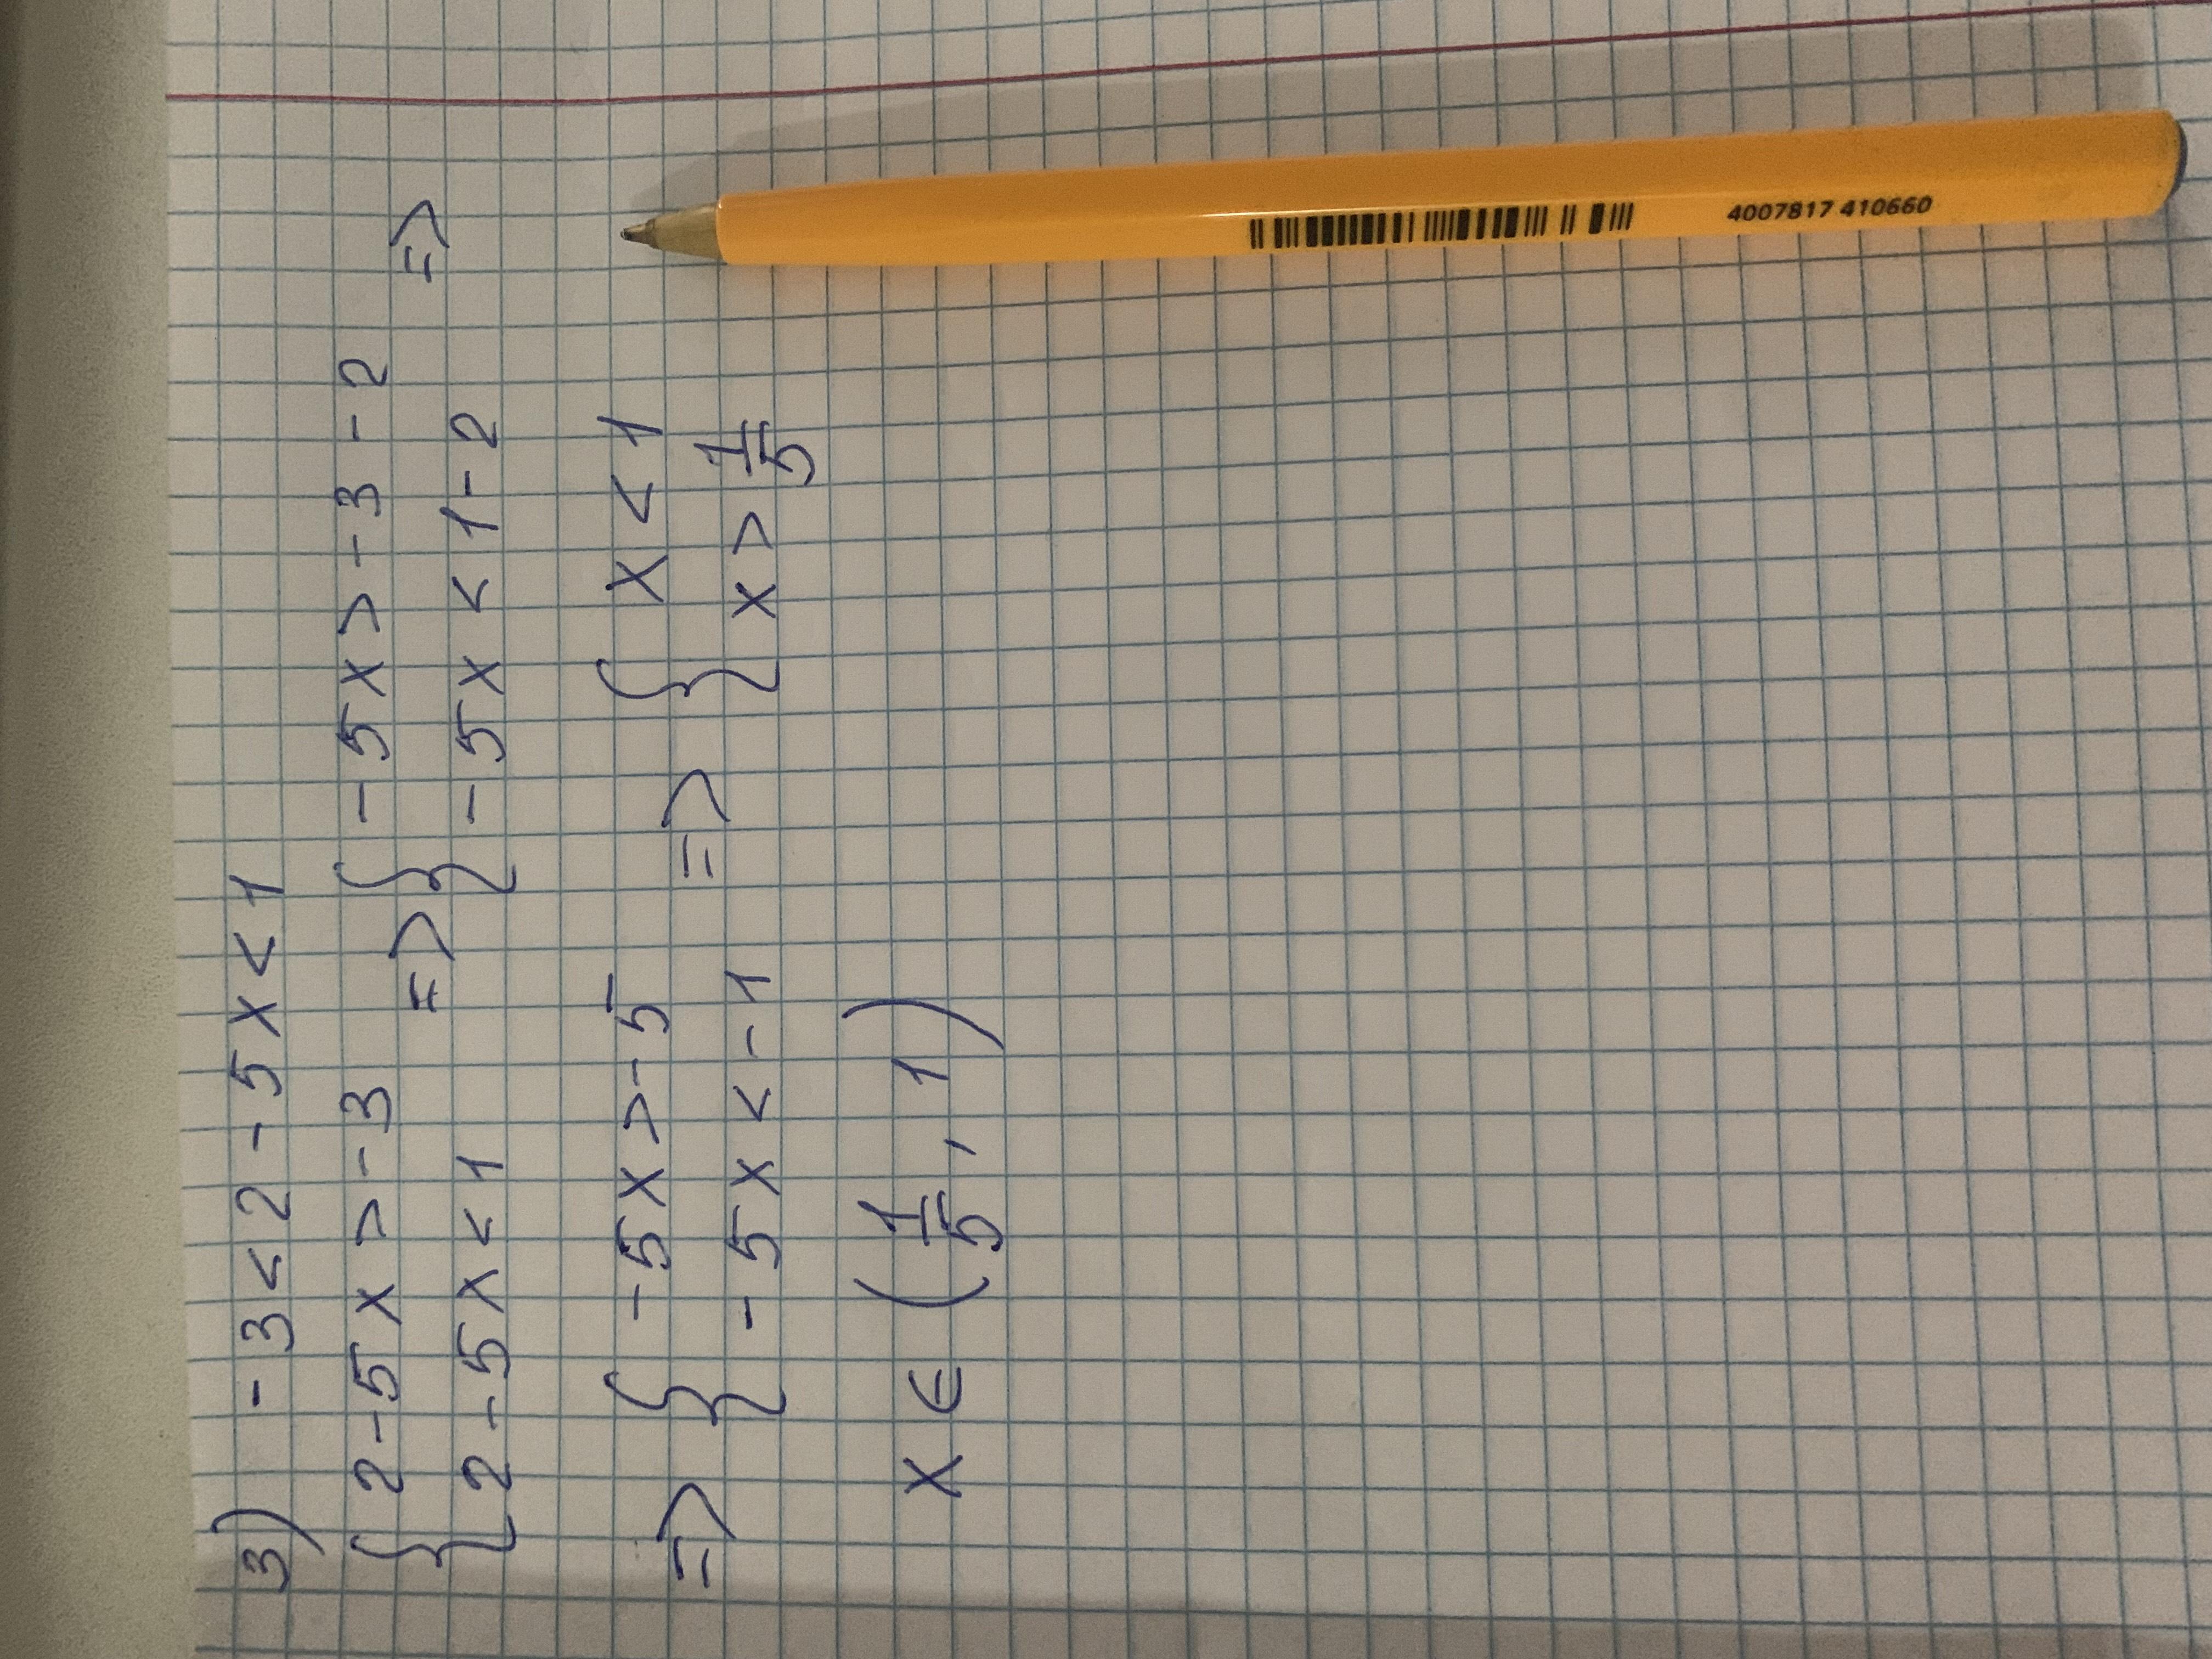 3) -3<2-5x<1
{ 2-5x>-3 => { -5x>-3-2 =>
{ 2-5x<1 { -5x<1-2
=> { -5x>-5 => { x<1
{ -5x<-1 { x>1/5
x ∈ (1/5, 1)
4007817 410660